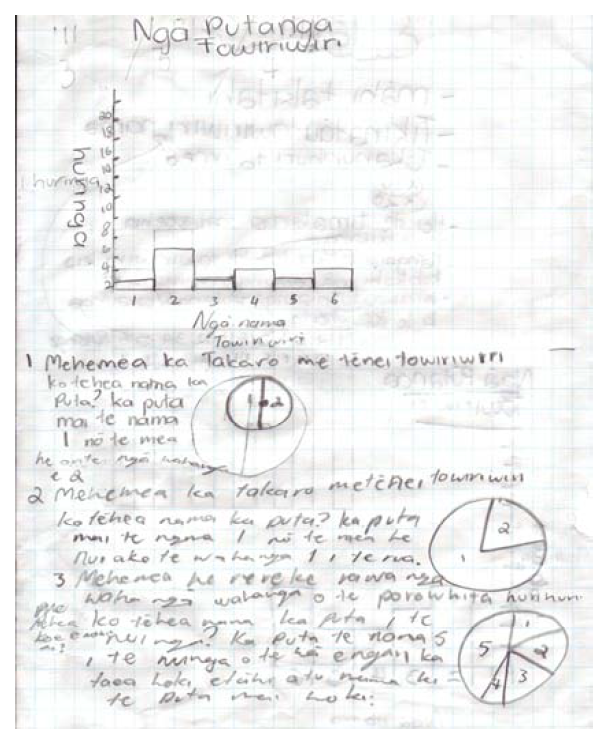 Ngā Putanga
Towiriwiri
huringa
20
18
16
14
12
10
8
6
4
2
1 2 3 4 5 6
Ngā nama
Towiriwiri
1 Mehemea ka Takaro me tēnei towiriwiri
ko tehea nama ka
Puta? ka puta
mai te nama
1 nō te mea
he ngā wahanga
e 2
1 2
2 Mehemea ka takaro me tēnei towiriwiri
ko tēhea nama ka puta? ka puta
mai te nama 1 nō te mea he
nui ake te wahanga 1 i te rua.
1 2
3 Mehemea he rereke rawa ngā
wahanga o te porowhita hurihuri
ko tēhea nama ka puta i te
nuinga? Ka puta te nama 5
i te nuinga o te wā engari ka
taea hoki etahi atu nama ki
te puta mai hoki.
1 2 3 4 5